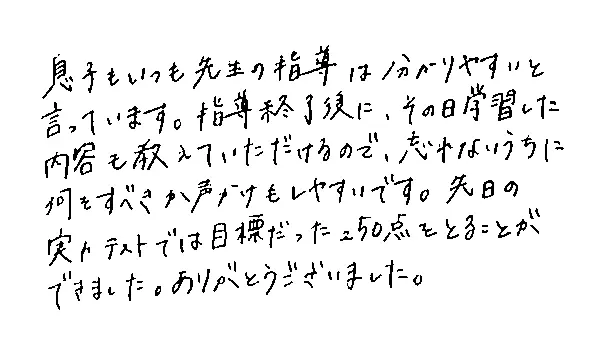 息子もいつも先生の指導は分かりやすいと
言っています。指導終了後に、その日学習した
内容も教えていただけるので、忘れないうちに
何をすべきか声がけもしやすいです。先日の
実力テストでは目標だった250点をとることが
できました。ありがとうございました。